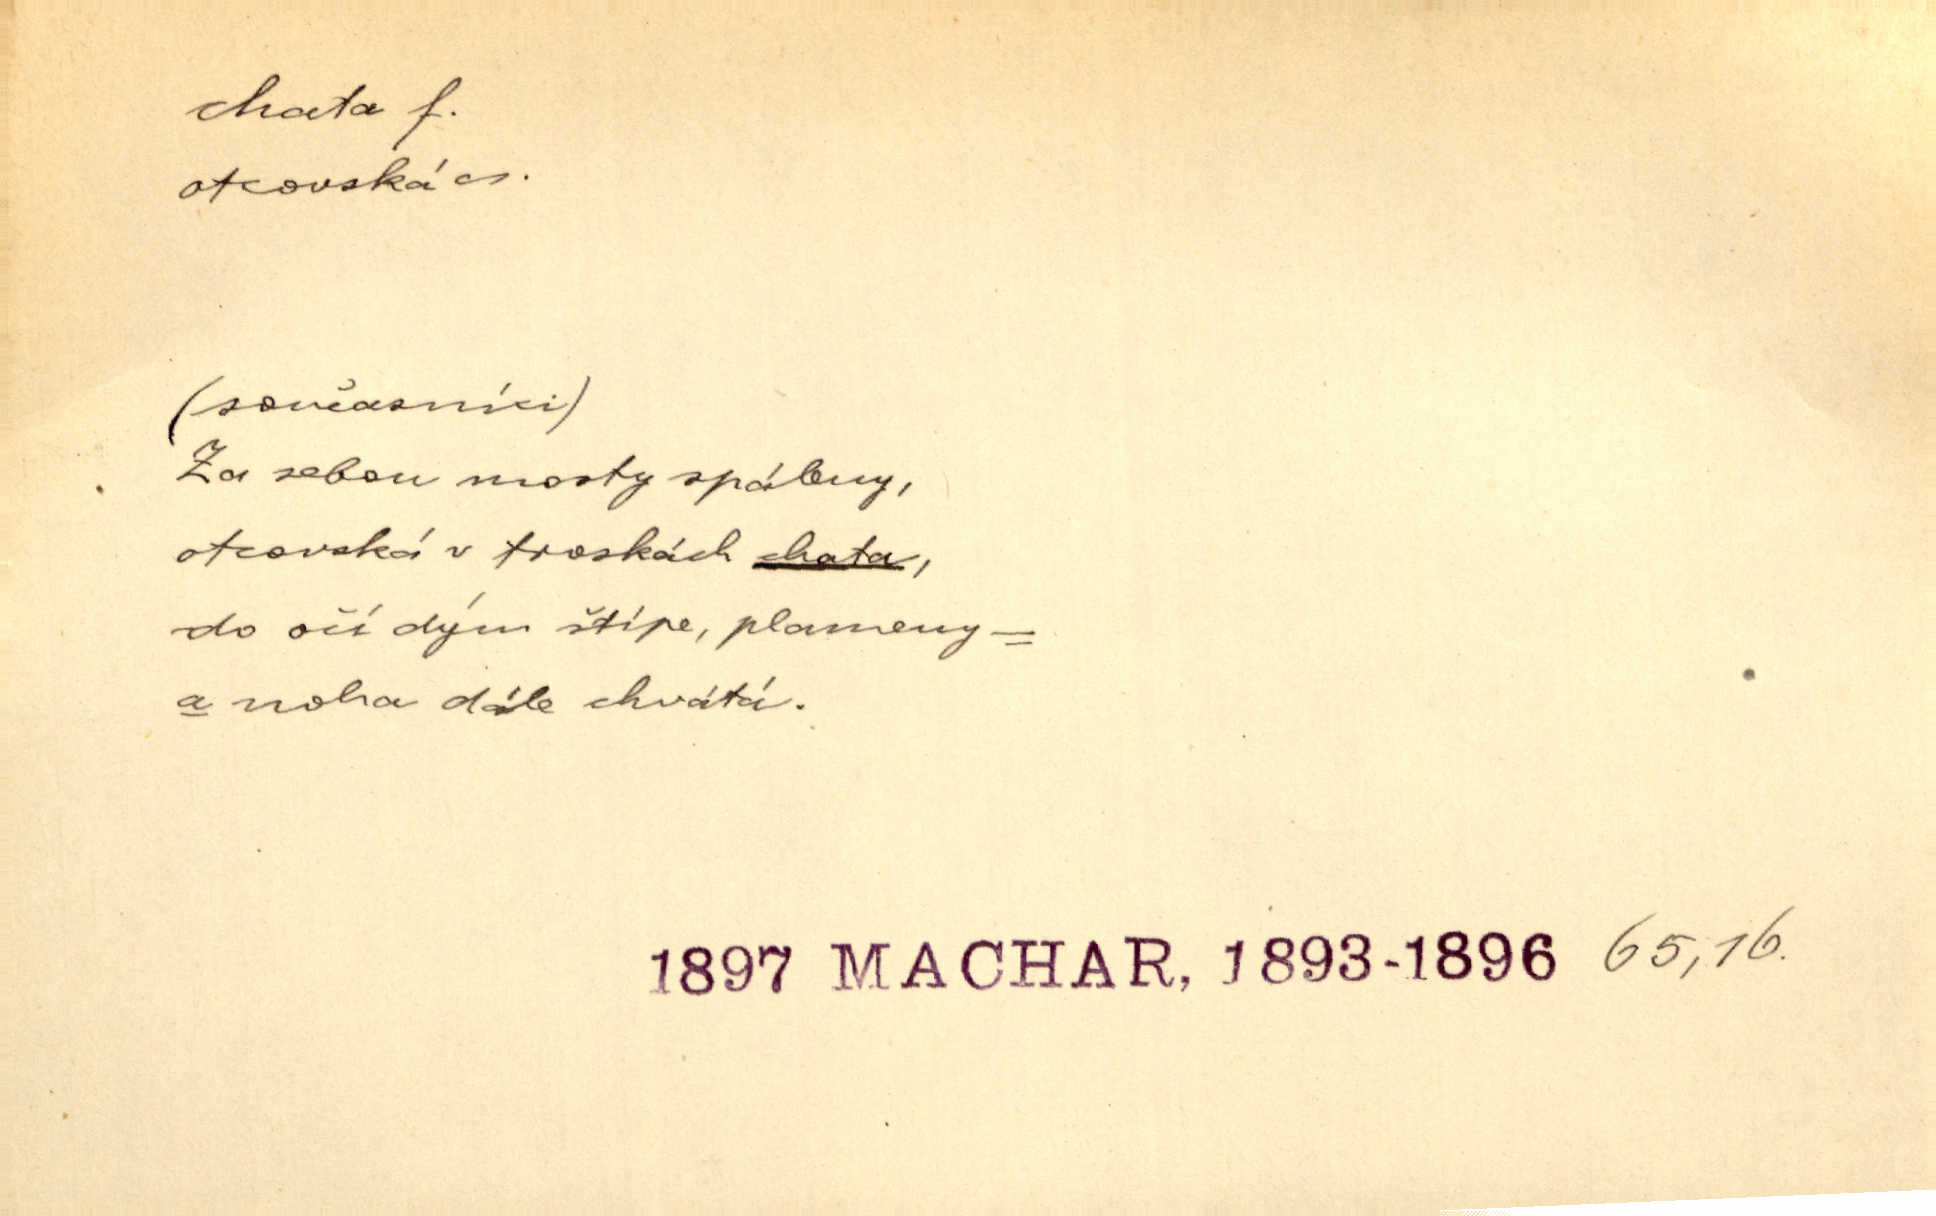 chata f.
otcovská cs.
(současníci)
Za sebou mosty spáleny,
otcovská v troskách chata,
do očí dým štípe, plameny –
a noha dále chvátá.
1897 MACHAR, 1893-1896 65,16.